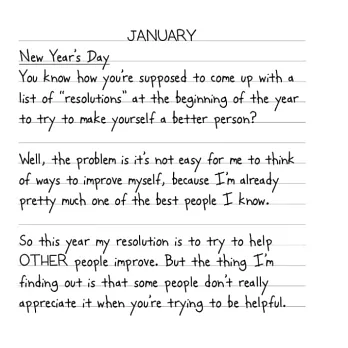 JANUARY
New Year's Day
You know how you're supposed to come up with a
list of "resolutions" at the beginning of the year
to try to make yourself a better person?
Well, the problem is it's not easy for me to think
of ways to improve myself, because I'm already
pretty much one of the best people I know.
So this year my resolution is to try to help
OTHER people improve. But the thing I'm
finding out is that some people don't really
appreciate it when you're trying to be helpful.